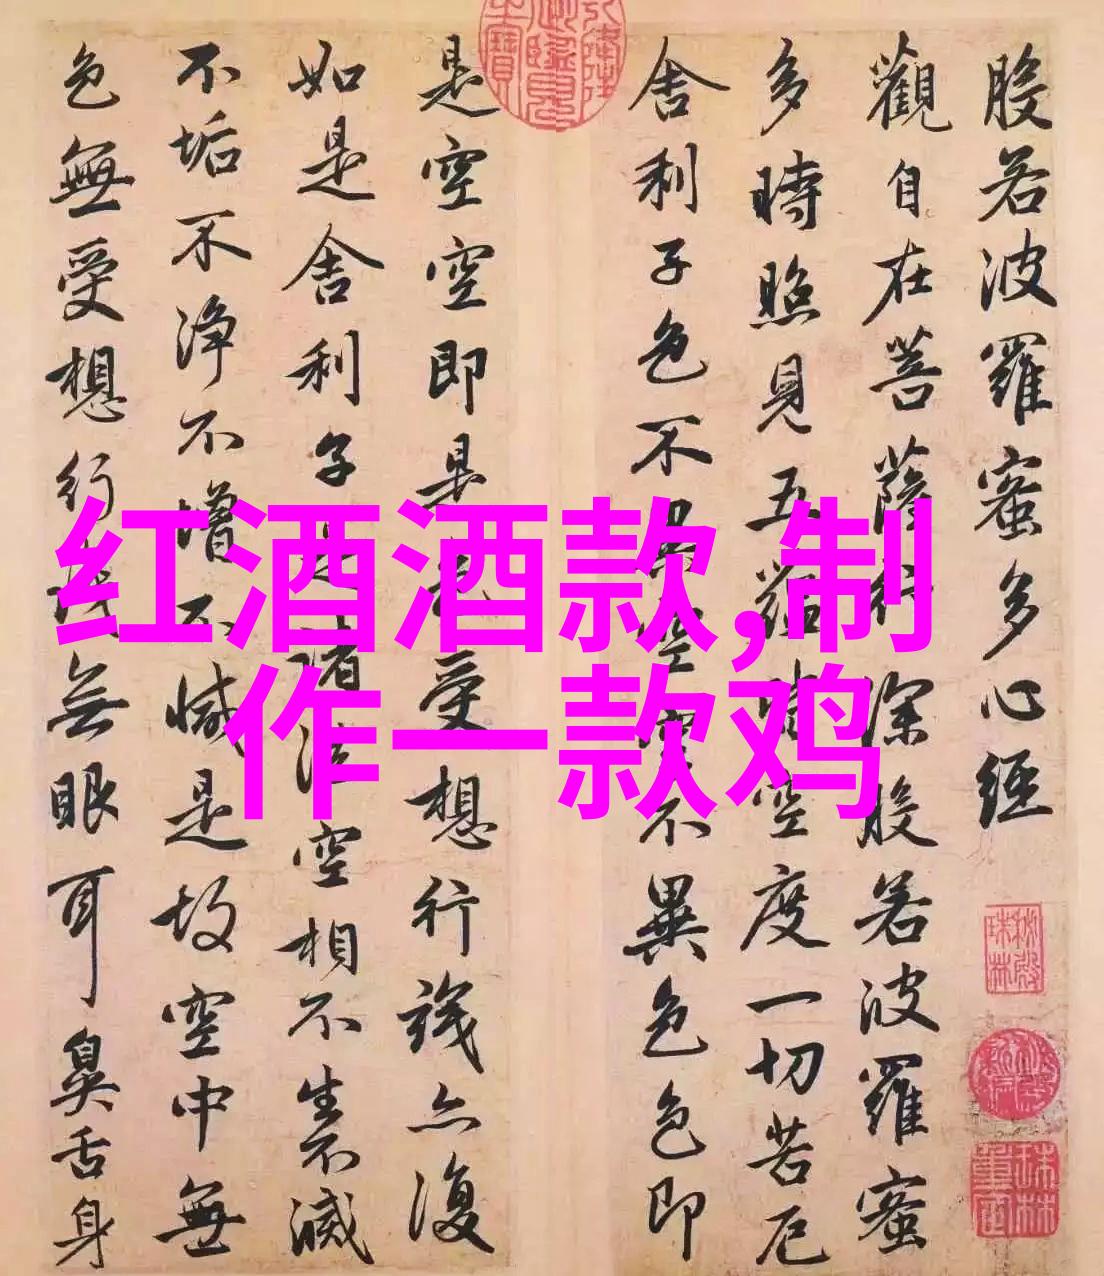 般若波羅蜜多心經
觀自在菩薩行深般若波羅蜜
多時照見五蘊皆空度一切苦厄
舍利子色不異空空不異色色即
是空空即是色受想行識亦復
如是舍利子是諸法空相不生不滅
不垢不净不增不減是故空中無
色無受想行識無眼耳鼻舌身
红酒酒款,制
作一款鸡